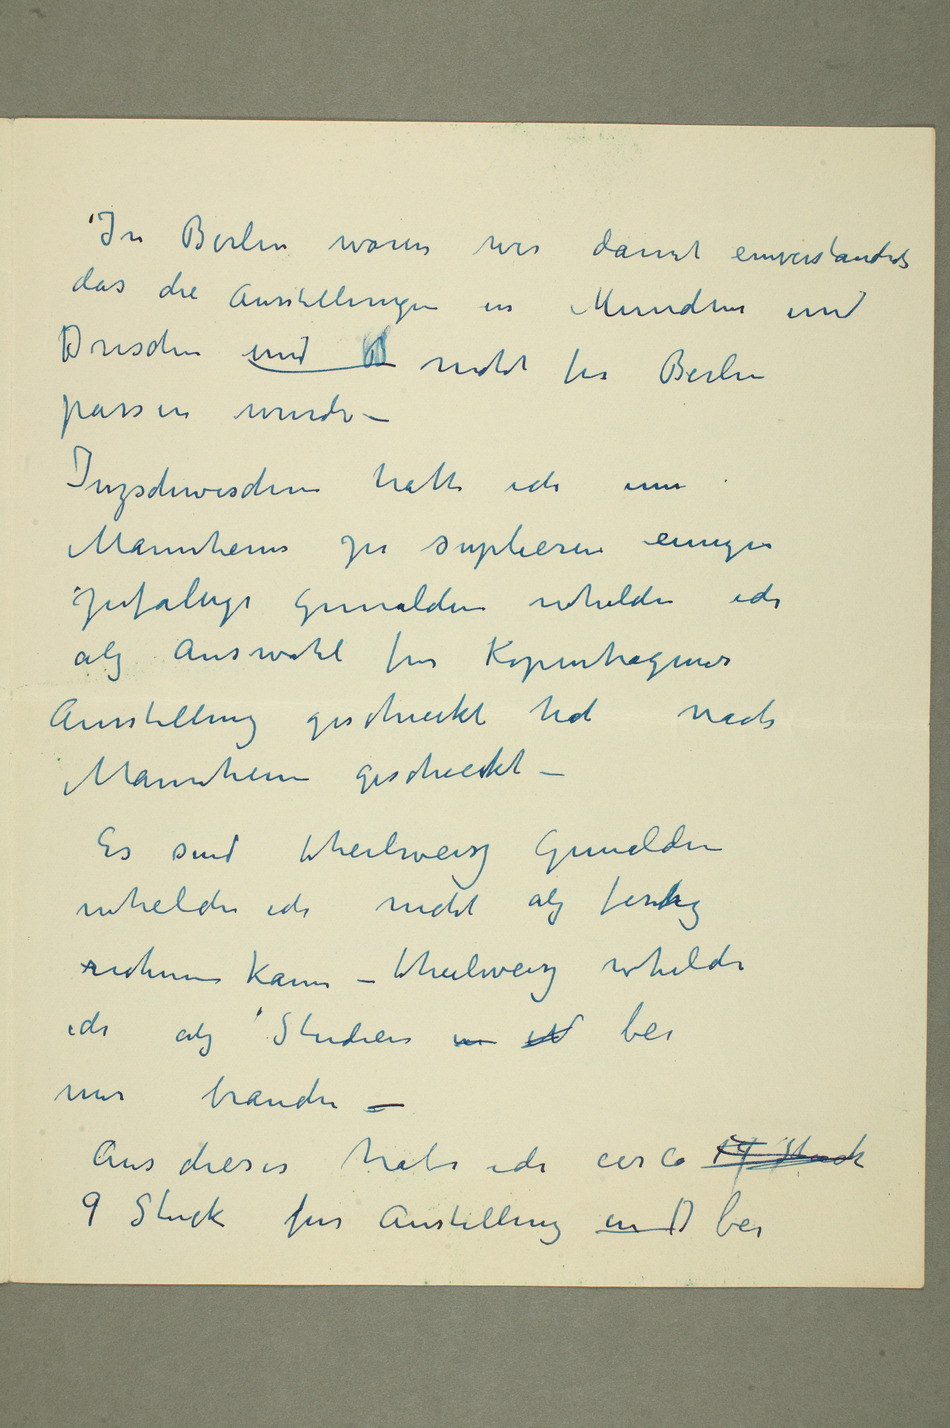 In Berlin waren wir damit einverstanden
das die Ausstellungen in Munchen und
Dresden und D nicht fur Berlin
passen wurde –
Inzschwischen hatte ich um
Mannheim zu suplieren einige
zufalige Gemalden whelche ich
alz Auswahl fur Kopenhagener
Ausstellung geschieckt hat nach
Mannheim geschieckt –
Es sind theilweisz Gemalden
whelche ich nicht alz fertig
rechnen kann – theilweisz whelche
ich alz Studien in ich bei
mir brauche –
Aus dieses habe ich cirCa 14 Stuck
9 Stuck fur Austellung in D bei